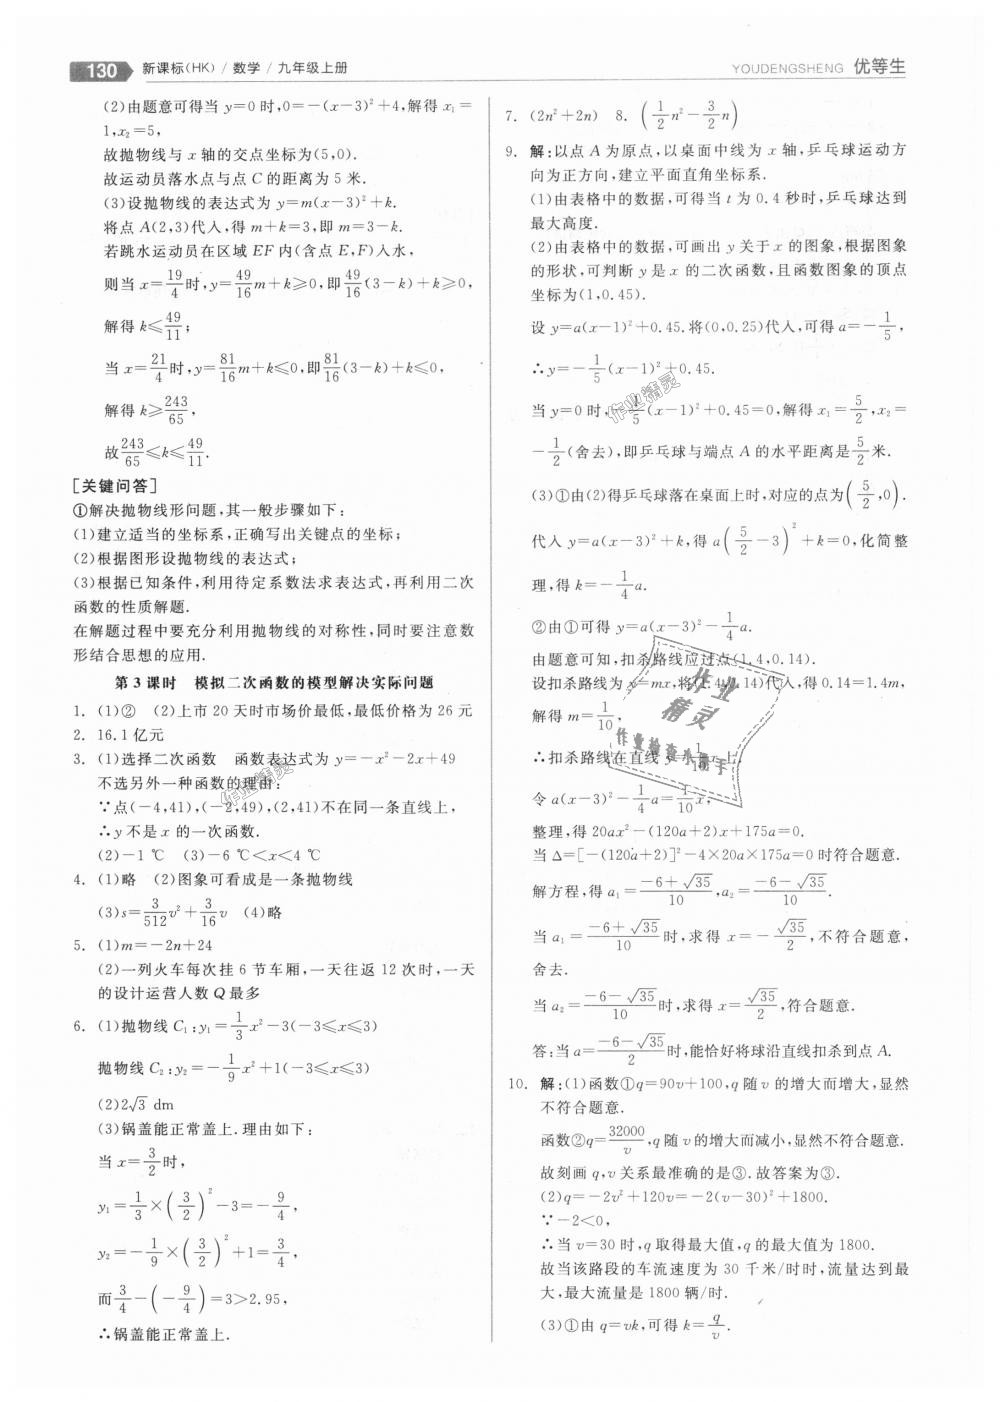 130 新课标(HK) / 数学 / 九年级上册
YOUDENGSHENG 优等生
(2)由题意可得当 y=0 时,0=-(x-3)²+4,解得 x₁=
1,x₂=5,
故抛物线与 x 轴的交点坐标为(5,0).
故运动员落水点与点 C 的距离为 5 米.
(3)设抛物线的表达式为 y=m(x-3)²+k.
将点 A(2,3)代入,得 m+k=3,即 m=3-k.
若跳水运动员在区域 EF 内(含点 E,F)入水,
则当 x=19/4时,y=49/16m+k≥0,即49/16(3-k)+k≥0,
解得 k≤49/11;
当 x=21/4时,y=81/16m+k≤0,即81/16(3-k)+k≤0,
解得 k≥243/65,
故243/65≤k≤49/11.
[关键问答]
①解决抛物线形问题,其一般步骤如下:
(1)建立适当的坐标系,正确写出关键点的坐标;
(2)根据图形设抛物线的表达式;
(3)根据已知条件,利用待定系数法求表达式,再利用二次
函数的性质解题.
在解题过程中要充分利用抛物线的对称性,同时要注意数
形结合思想的应用.
第 3 课时 模拟二次函数的模型解决实际问题
1. (1)② (2)上市 20 天时市场价最低,最低价格为 26 元
2. 16.1亿元
3. (1)选择二次函数 函数表达式为 y=-x²-2x+49
不选另外一种函数的理由:
∵点(-4,41),(-2,49),(2,41)不在同一条直线上,
∴y 不是 x 的一次函数.
(2)-1 ℃ (3)-6 ℃<x<4 ℃
4. (1)略 (2)图象可看成是一条抛物线
(3)s=3/512v²+3/16v (4)略
5. (1)m=-2n+24
(2)一列火车每次挂 6 节车厢,一天往返 12 次时,一天
的设计运营人数 Q 最多
6. (1)抛物线 C₁:y₁=1/3x²-3(-3≤x≤3)
抛物线 C₂:y₂=-1/9x²+1(-3≤x≤3)
(2)2√3 dm
(3)锅盖能正常盖上.理由如下:
当 x=3/2时,
y₁=1/3×(3/2)²-3=-9/4,
y₂=-1/9×(3/2)²+1=3/4,
而3/4-(-9/4)=3>2.95,
∴锅盖能正常盖上.
7. (2n²+2n) 8. (1/2n²-3/2n)
9. 解:以点 A 为原点,以桌面中线为 x 轴,乒乓球运动方
向为正方向,建立平面直角坐标系.
(1)由表格中的数据,可得当 t 为 0.4 秒时,乒乓球达到
最大高度.
(2)由表格中的数据,可画出 y 关于 x 的图象,根据图象
的形状,可判断 y 是 x 的二次函数,且函数图象的顶点
坐标为(1,0.45).
设 y=a(x-1)²+0.45.将(0,0.25)代入,可得 a=-1/5,
∴y=-1/5(x-1)²+0.45.
当 y=0 时,-1/5(x-1)²+0.45=0,解得 x₁=5/2,x₂=
-1/2(舍去),即乒乓球与端点 A 的水平距离是5/2米.
(3)①由(2)得乒乓球落在桌面上时,对应的点为(5/2,0).
代入 y=a(x-3)²+k,得 a(5/2-3)²+k=0,化简整
理,得 k=-1/4a.
②由①可得 y=a(x-3)²-1/4a.
由题意可知,扣杀路线应过点(1.4,0.14).
设扣杀路线为 y=mx,将(1.4,0.14)代入,得 0.14=1.4m,
解得 m=1/10,
∴扣杀路线在直线 y=1/10x上.
令 a(x-3)²-1/4a=1/10x,
整理,得 20ax²-(120a+2)x+175a=0.
当 Δ=[-(120a+2)]²-4×20a×175a=0 时符合题意.
解方程,得 a₁=(-6+√35)/10,a₂=(-6-√35)/10.
当 a₁=(-6+√35)/10时,求得 x=-√35/2,不符合题意,
舍去.
当 a₂=(-6-√35)/10时,求得 x=√35/2,符合题意.
答:当 a=(-6-√35)/2时,能恰好将球沿直线扣杀到点 A.
10. 解:(1)函数①q=90v+100,q 随 v 的增大而增大,显然
不符合题意.
函数②q=32000/v,q 随 v 的增大而减小,显然不符合题意.
故刻画 q,v 关系最准确的是③.故答案为③.
(2)q=-2v²+120v=-2(v-30)²+1800.
∵-2<0,
∴当 v=30 时,q 取得最大值,q 的最大值为 1800.
故当该路段的车流速度为 30 千米/时时,流量达到最
大,最大流量是 1800 辆/时.
(3)①由 q=vk,可得 k=q/v.
作业精灵
作业精灵
作业
精灵
作业检查小帮手